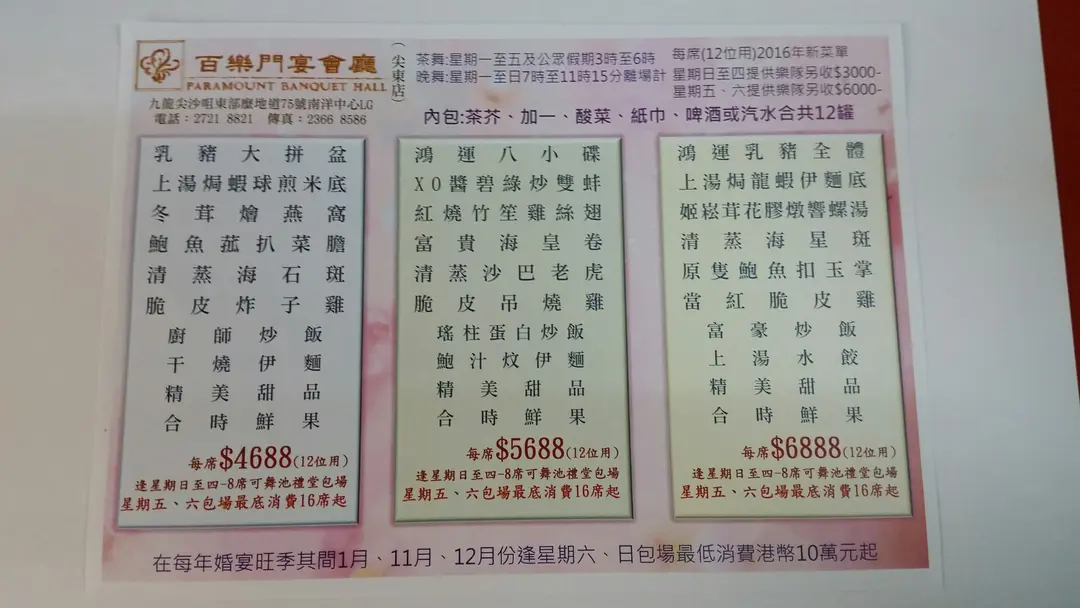 百樂門宴會廳
(尖東店)
PARAMOUNT BANQUET HALL
九龍尖沙咀東部麼地道75號南洋中心LG
電話：2721 8821 傳真：2366 8586
茶舞:星期一至五及公眾假期3時至6時
晚舞:星期一至日7時至11時15分離場計
每席(12位用)2016年新菜單
星期日至四提供樂隊另收$3000-
星期五、六提供樂隊另收$6000-
內包:茶芥、加一、酸菜、紙巾、啤酒或汽水合共12罐
乳豬大拼盆
上湯焗蝦球煎米底
冬茸燴燕窩
鮑魚菰扒菜膽
清蒸海石斑
脆皮炸子雞
廚師炒飯
干燒伊麵
精美甜品
合時鮮果
每席$4688(12位用)
逢星期日至四-8席可舞池禮堂包場
星期五、六包場最底消費16席起
鴻運八小碟
XO醬碧綠炒雙蚌
紅燒竹笙雞絲翅
富貴海皇卷
清蒸沙巴老虎
脆皮吊燒雞
瑤柱蛋白炒飯
鮑汁炆伊麵
精美甜品
合時鮮果
每席$5688(12位用)
逢星期日至四-8席可舞池禮堂包場
星期五、六包場最底消費16席起
鴻運乳豬全體
上湯焗龍蝦伊麵底
姬崧茸花膠燉響螺湯
清蒸海星斑
原隻鮑魚扣玉掌
當紅脆皮雞
富豪炒飯
上湯水餃
精美甜品
合時鮮果
每席$6888(12位用)
逢星期日至四-8席可舞池禮堂包場
星期五、六包場最底消費16席起
在每年婚宴旺季其間1月、11月、12月份逢星期六、日包場最低消費港幣10萬元起